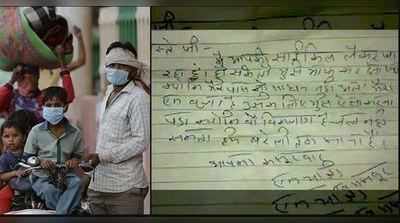 स्ते जी -
मै आपकी साईकिल लेकर जा
रहा हूं। हो सके तो मुझे माफ कर देना
क्योंकि मेरे पास साधन नही
एक बच्चा है उसके लिए मुझे ऐसा करना
पड़ा क्योंकि वो विकलांग है चल नही
सकता हमे बरेली तक जाना है।
आपका कसूरवार
एक यात्री